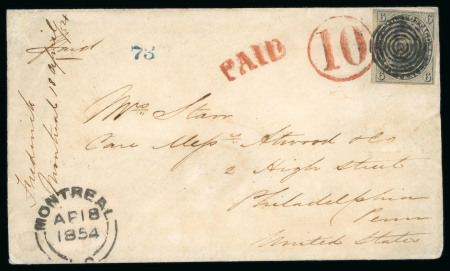 Paid
Frederick
Montreal 18 April /54
73
PAID
10
6 6
6 6
Mrs Starr
Care Messrs Atwood & Co
2 High Street
Philadelphia
Penn
United States
MONTREAL
AP 18
1854